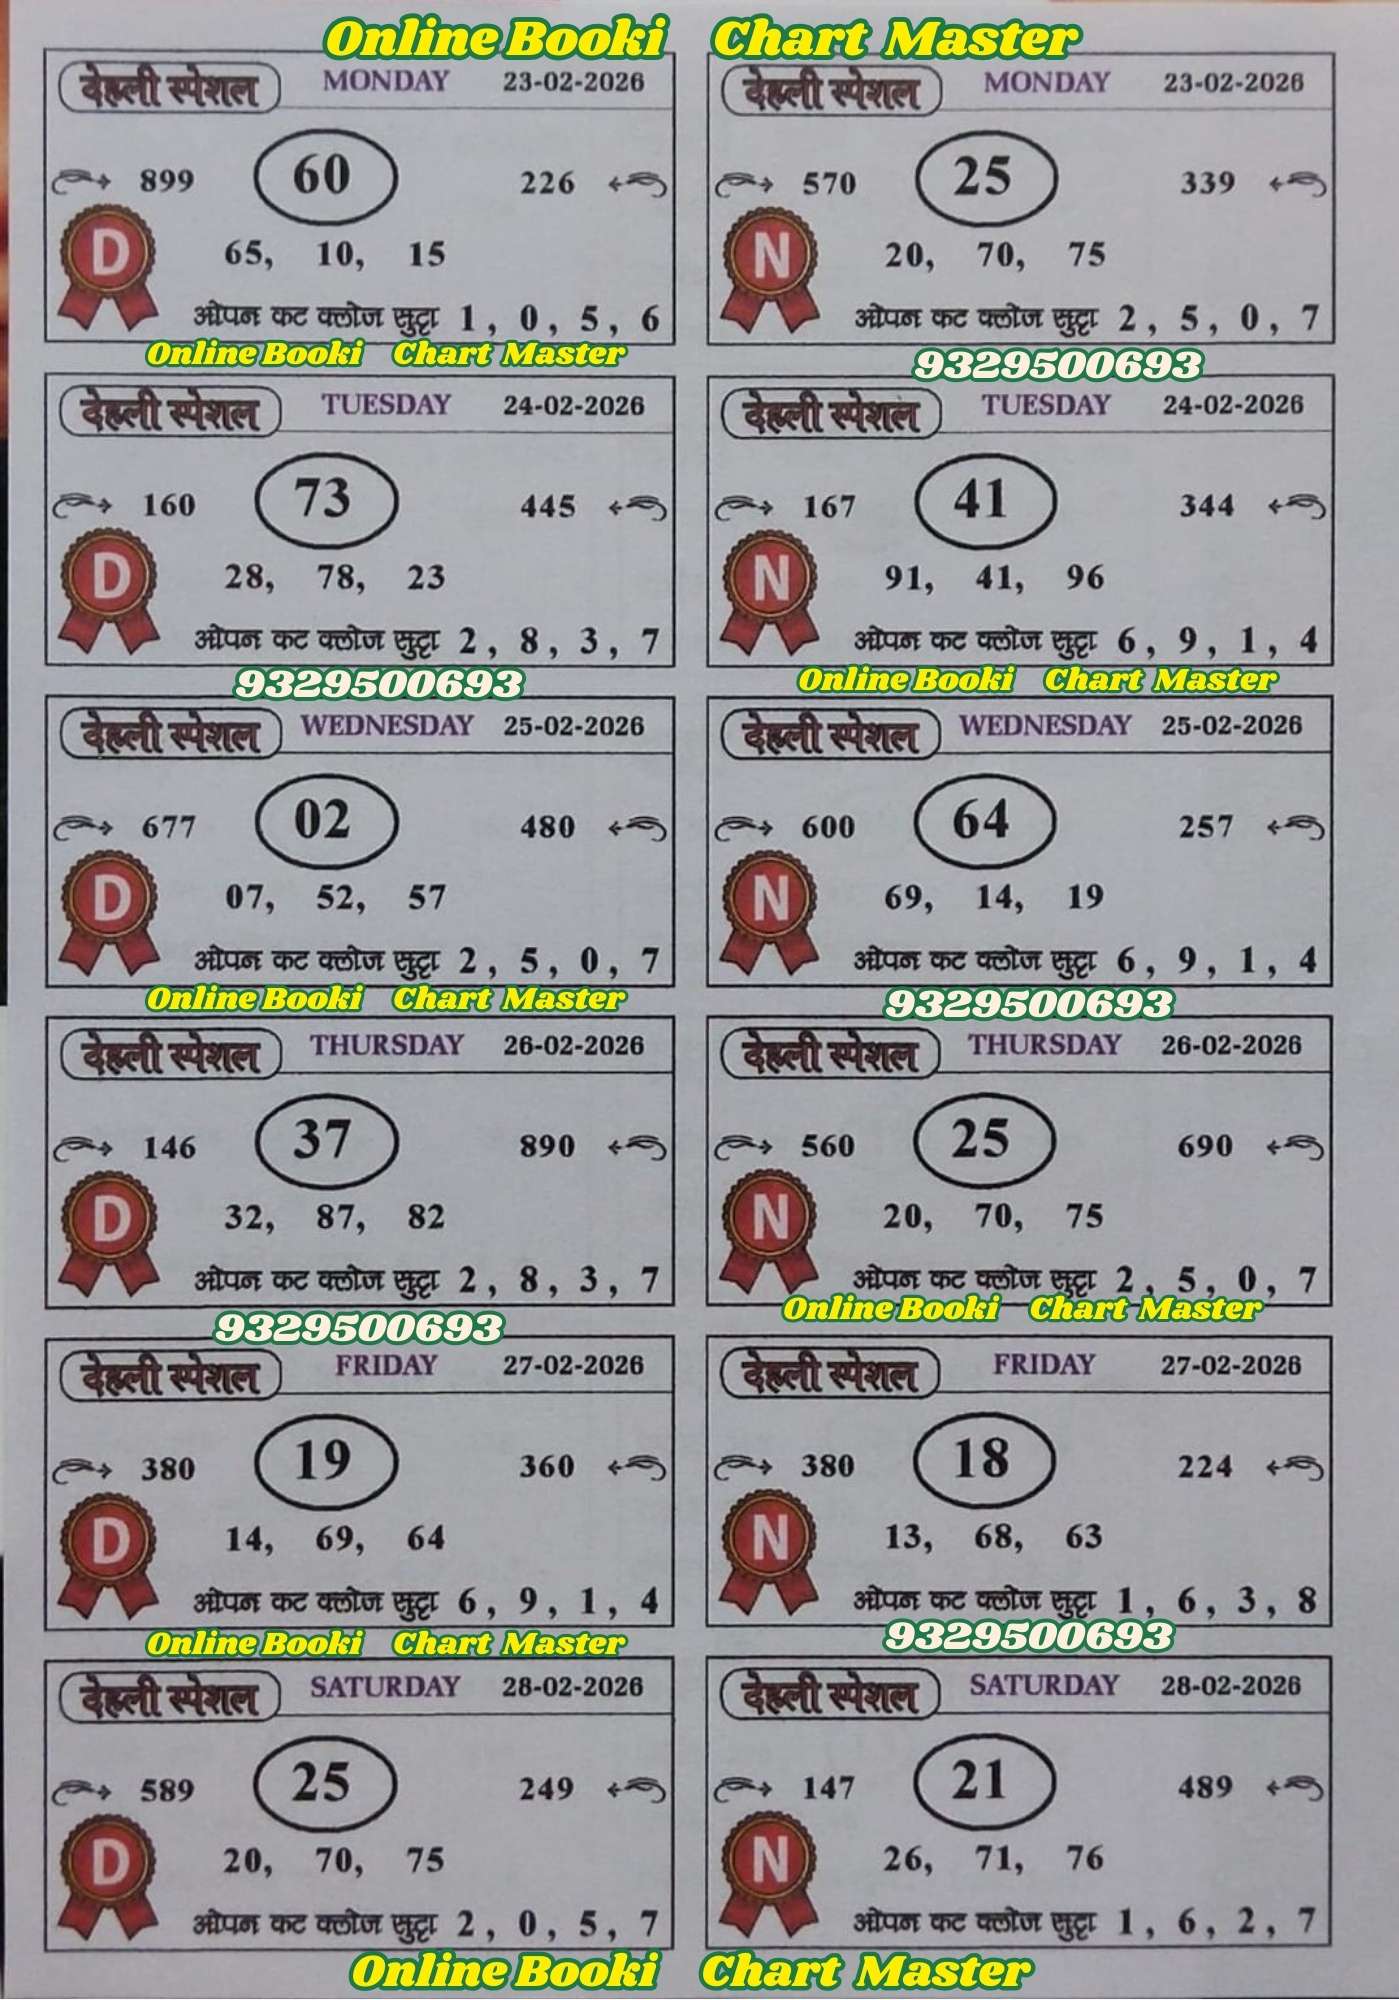 Online Booki Chart Master
देहली स्पेशल MONDAY 23-02-2026
899 60 226
D 65, 10, 15
ओपन कट क्लोज सुट्टा 1, 0, 5, 6
Online Booki Chart Master
देहली स्पेशल MONDAY 23-02-2026
570 25 339
N 20, 70, 75
ओपन कट क्लोज सुट्टा 2, 5, 0, 7
9329500693
देहली स्पेशल TUESDAY 24-02-2026
160 73 445
D 28, 78, 23
ओपन कट क्लोज सुट्टा 2, 8, 3, 7
9329500693
देहली स्पेशल TUESDAY 24-02-2026
167 41 344
N 91, 41, 96
ओपन कट क्लोज सुट्टा 6, 9, 1, 4
Online Booki Chart Master
देहली स्पेशल WEDNESDAY 25-02-2026
677 02 480
D 07, 52, 57
ओपन कट क्लोज सुट्टा 2, 5, 0, 7
Online Booki Chart Master
देहली स्पेशल WEDNESDAY 25-02-2026
600 64 257
N 69, 14, 19
ओपन कट क्लोज सुट्टा 6, 9, 1, 4
9329500693
देहली स्पेशल THURSDAY 26-02-2026
146 37 890
D 32, 87, 82
ओपन कट क्लोज सुट्टा 2, 8, 3, 7
9329500693
देहली स्पेशल THURSDAY 26-02-2026
560 25 690
N 20, 70, 75
ओपन कट क्लोज सुट्टा 2, 5, 0, 7
Online Booki Chart Master
देहली स्पेशल FRIDAY 27-02-2026
380 19 360
D 14, 69, 64
ओपन कट क्लोज सुट्टा 6, 9, 1, 4
Online Booki Chart Master
देहली स्पेशल FRIDAY 27-02-2026
380 18 224
N 13, 68, 63
ओपन कट क्लोज सुट्टा 1, 6, 3, 8
9329500693
देहली स्पेशल SATURDAY 28-02-2026
589 25 249
D 20, 70, 75
ओपन कट क्लोज सुट्टा 2, 0, 5, 7
देहली स्पेशल SATURDAY 28-02-2026
147 21 489
N 26, 71, 76
ओपन कट क्लोज सुट्टा 1, 6, 2, 7
Online Booki Chart Master